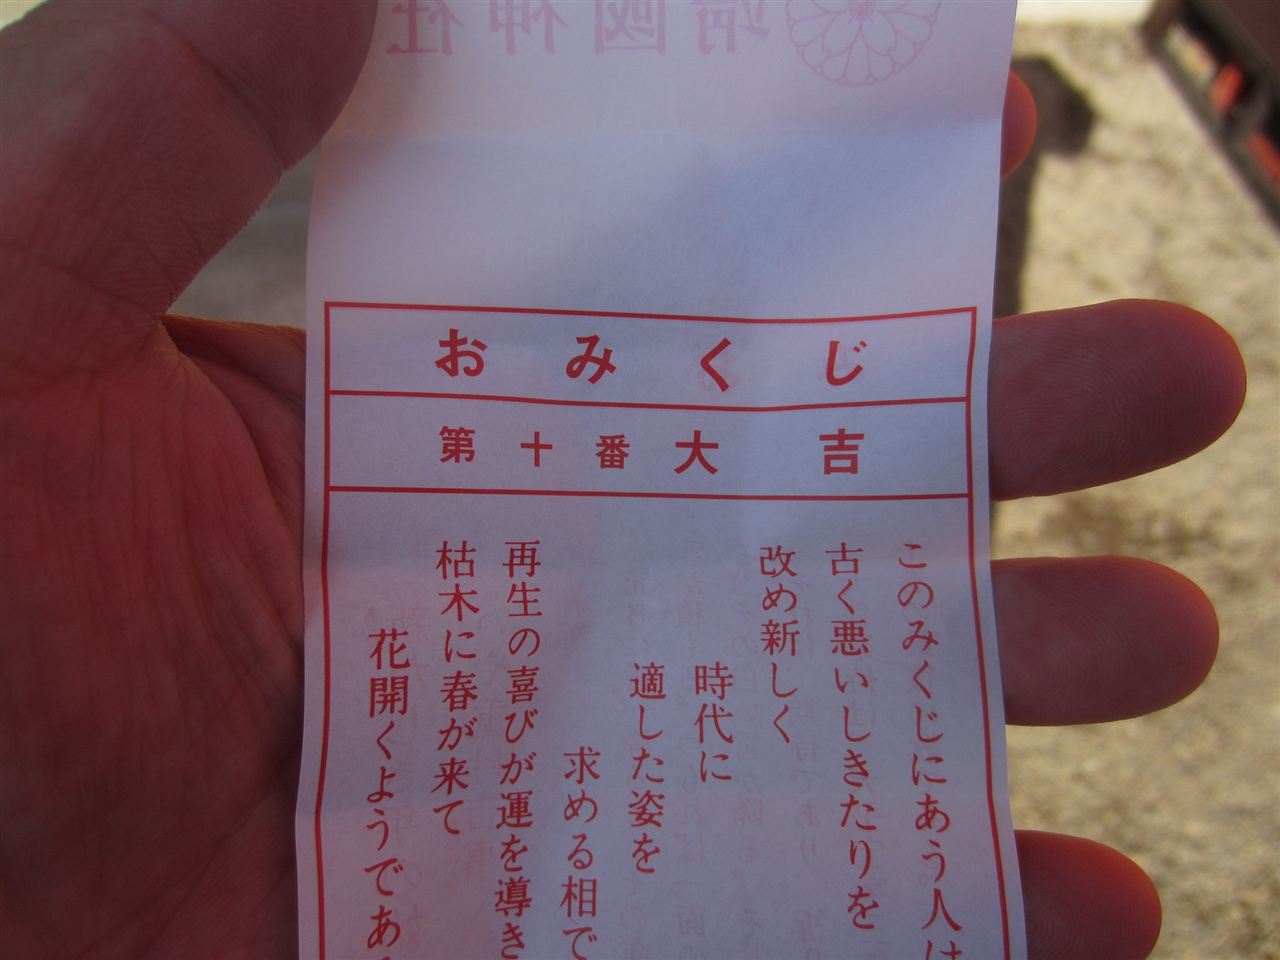 靖國神社
おみくじ
第十番大吉
このみくじにあう人は
古く悪いしきたりを
改め新しく
時代に
適した姿を
求める相で
再生の喜びが運を導き
枯木に春が来て
花開くようであ